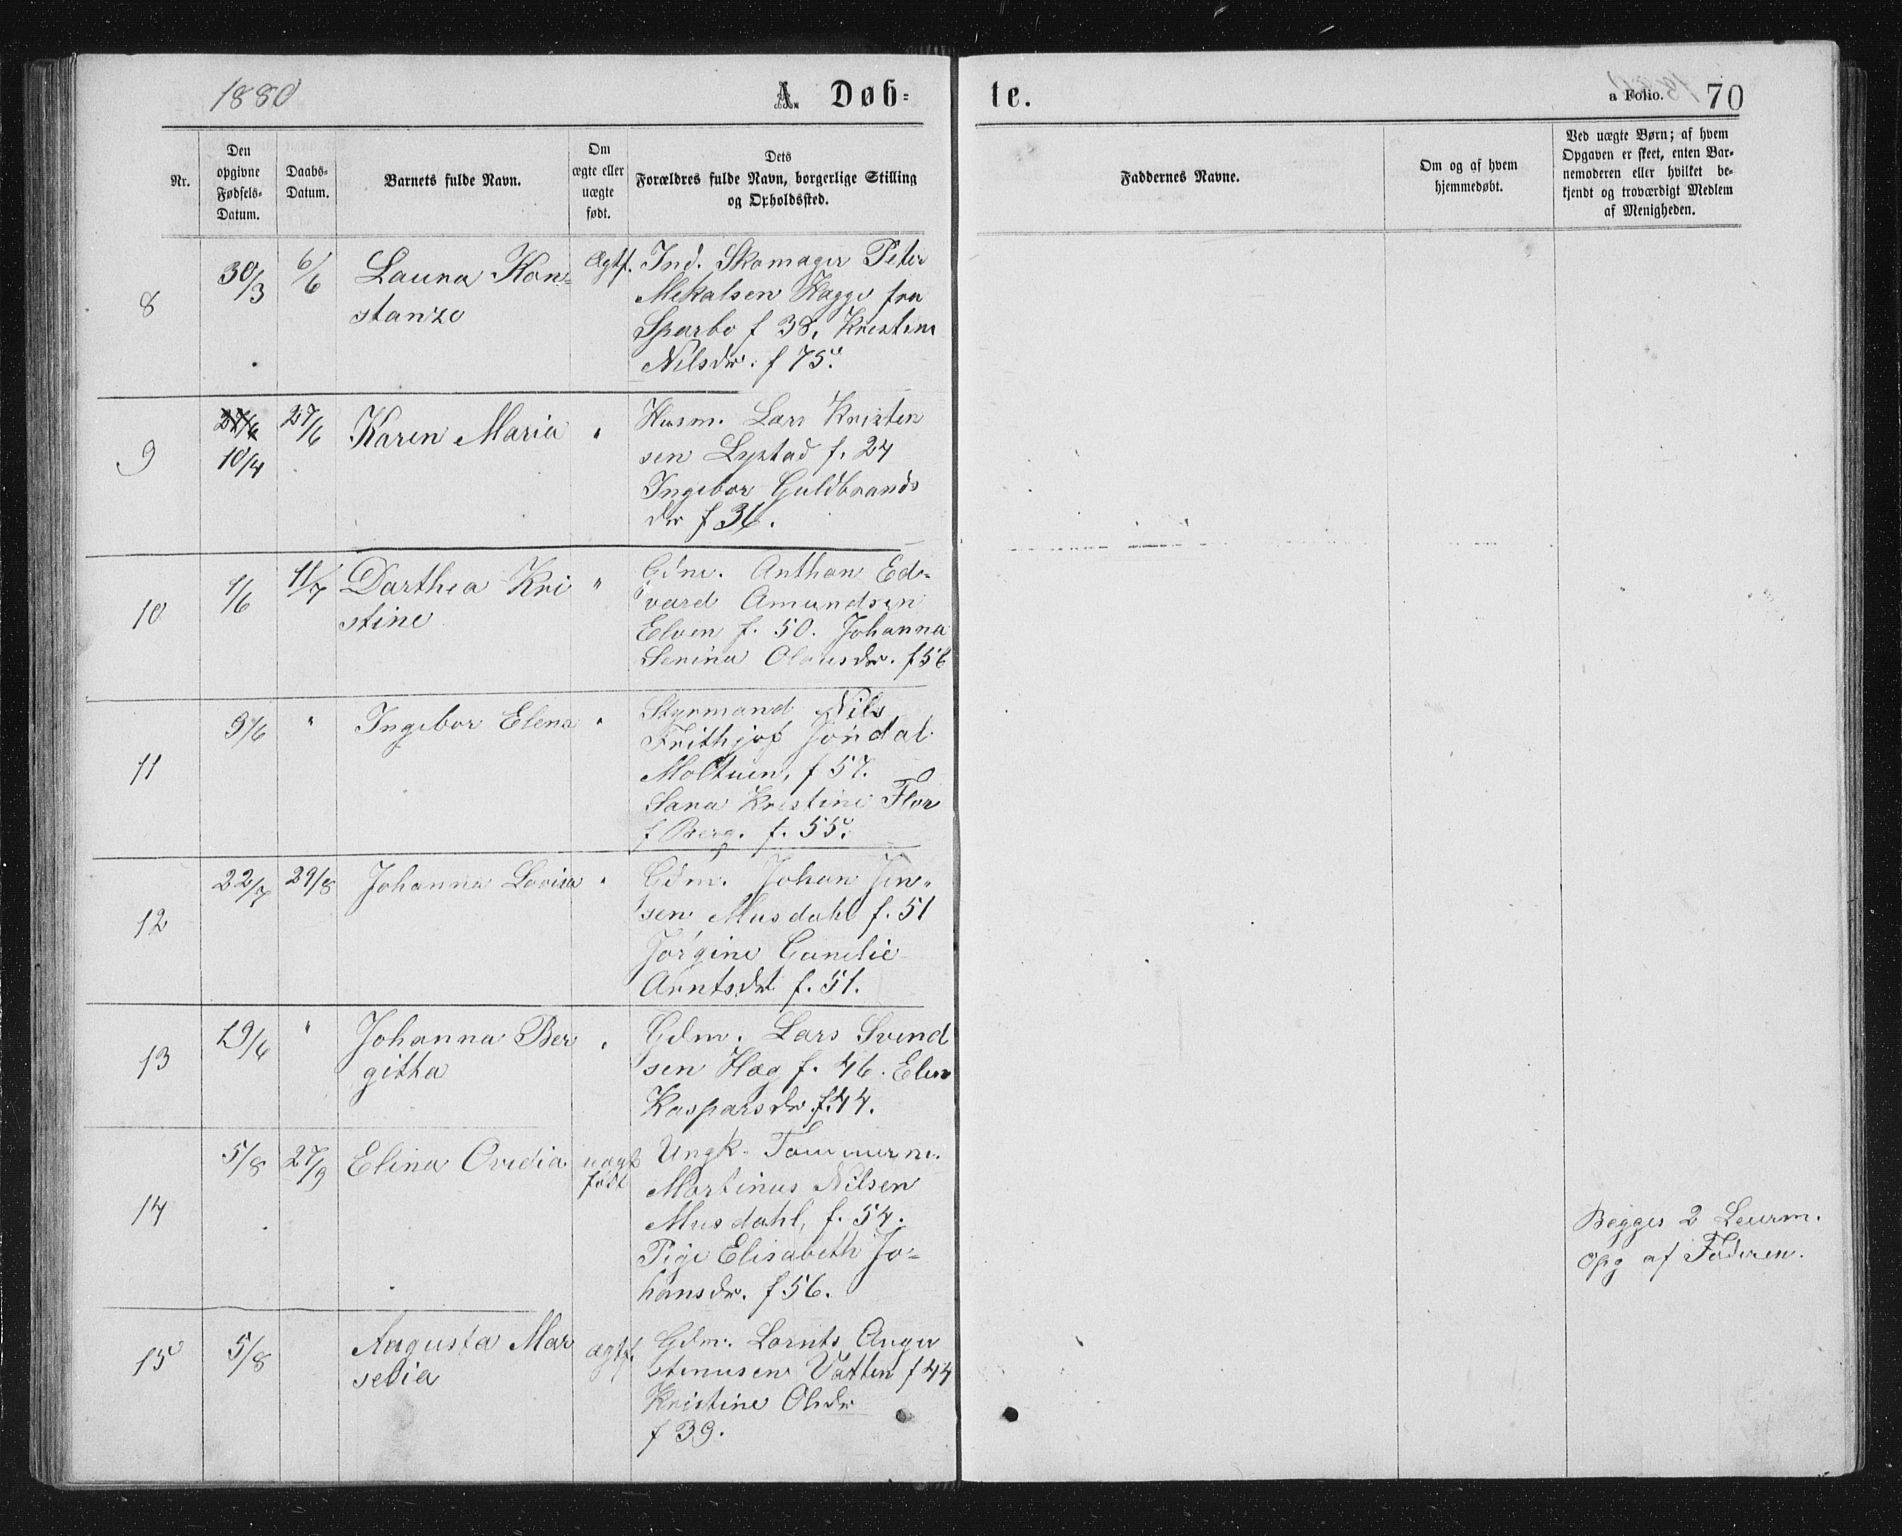 1880
A. Døb=
te.
a Folio.
70
Nr.
Den opgivne Fødsels-Datum.
Daabs-Datum.
Barnets fulde Navn.
Om ægte eller uægte født.
Dets Forældres fulde Navn, borgerlige Stilling og Opholdssted.
Faddernes Navne.
Om og af hvem hjemmedøbt.
Ved uægte Børn; af hvem Opgaven er skeet, enten Barnemoderen eller hvilket bekjendt og troværdigt Medlem af Menigheden.
8
30/3
6/6
Laura Kon=
stanze
Ægtf.
Ind. Skomager Peter
Mekalsen Hagge fra
Sparbo f 38, Kristine
Nilsdr. f 75.
9
27/6
10/4
27/6
Karen Maria
"
Husm. Lars Kristen
sen Lystad f. 24
Ingebor Guldbrands
dr f 36.
10
1/6
11/7
Darthea Kri
stine
"
Gdm. Anthon Ed=
vard Amundsen
Elven f. 50. Johanna
Serina Olausdr. f 56
11
9/6
"
Ingebor Elena
"
Styrmand Nils
Frithjof Jøndal
Moltuen, f 57.
Sara Kristine Flor
f Berg. f. 55.
12
22/7
29/8
Johanna Lovisa
"
Gdm. Johan Jen=
sen Musdahl f. 51
Jørgine
Arntsdt f. 51.
13
19/6
"
Johanna Ber
githa
"
Gdm. Lars Svend
sen Hag f. 46. Elen
Kasparsdr f. 44.
14
5/8
27/9
Elina Ovidia
uægt
født
Ungk. Tømmerm.
Martinus Nilsen
Musdahl, f. 54.
Pige Elisabeth Jo=
hansdr. f 56.
Begges 2 Leierm.
Opg af Faderen.
15
5/8
Augusta Mar
selia
ægtf.
Gdm. Lornts Augu
stinusen Vatten f 44
Kristine Olsdr
f 39.